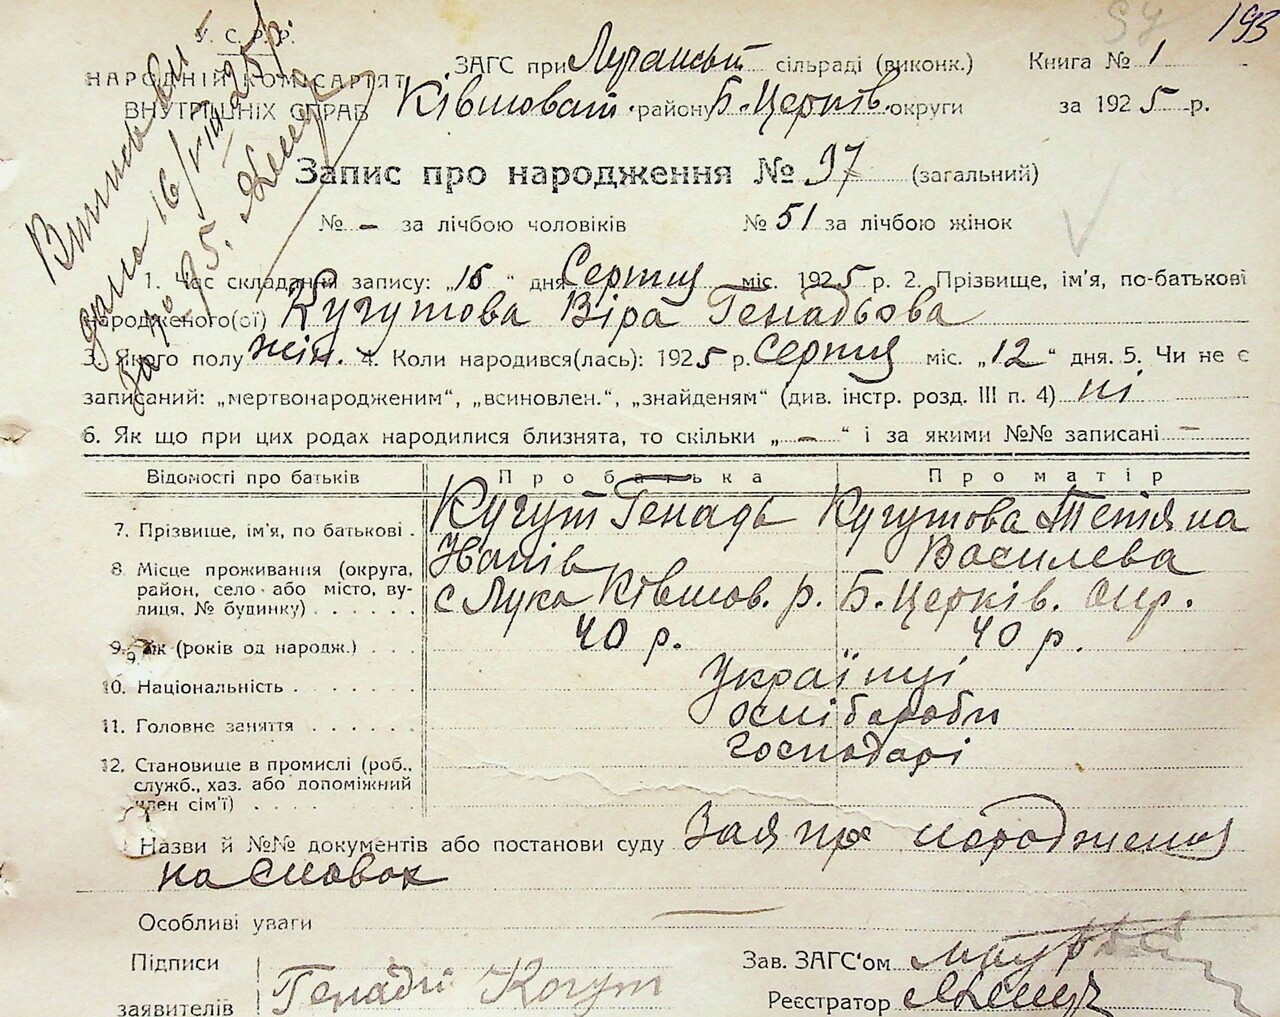 193
У. С. Р. Р.
НАРОДНІЙ КОМІСАРІЯТ
ВНУТРІШНІХ СПРАВ
ЗАГС при Лучанській сільраді (виконк.) Книга № 1
Ківшоват. району Б-Церків. округи за 1925 р.
Запис про народження № 97 (загальний)
№ – за лічбою чоловіків № 51 за лічбою жінок
Виписи
дана 16/VIII 25 р.
за № 95.
1. Час складання запису: „15" дня Серпня міс. 1925 р. 2. Прізвище, ім'я, по-батькові
народженого(ої) Кугутова Віра Генадьова
3. Якого полу жін. 4. Коли народився(лась): 1925 р. Серпня міс. „12" дня. 5. Чи не є
записаний: „мертвонародженим", „всиновлен.", „знайденям" (див. інстр. розд. III п. 4) ні
6. Як що при цих родах народилися близнята, то скільки „–" і за якими №№ записані –
Відомості про батьків Про батька Про матір
7. Прізвище, ім'я, по батькові . Кугут Генадь Кугутова Тетяна
Василева
8. Місце проживання (округа,
район, село або місто, ву-
лиця, № будинку) . . . . . . с Лука Ківшов. р. Б. Церків. окр.
9. Вік (років од народж.) . . . 40 р. 40 р.
10. Національність . . . . . . . Українці
11. Головне заняття . . . . . . хлібороби
12. Становище в промислі (роб.,
служб., хаз. або допоміжний
член сім'ї) . . . . . . . . господарі
Назви й №№ документів або постанови суду Зая про народження
на словах
Особливі уваги —
Підписи
заявителів Генадій Когут
Зав. ЗАГС'ом
Реєстратор